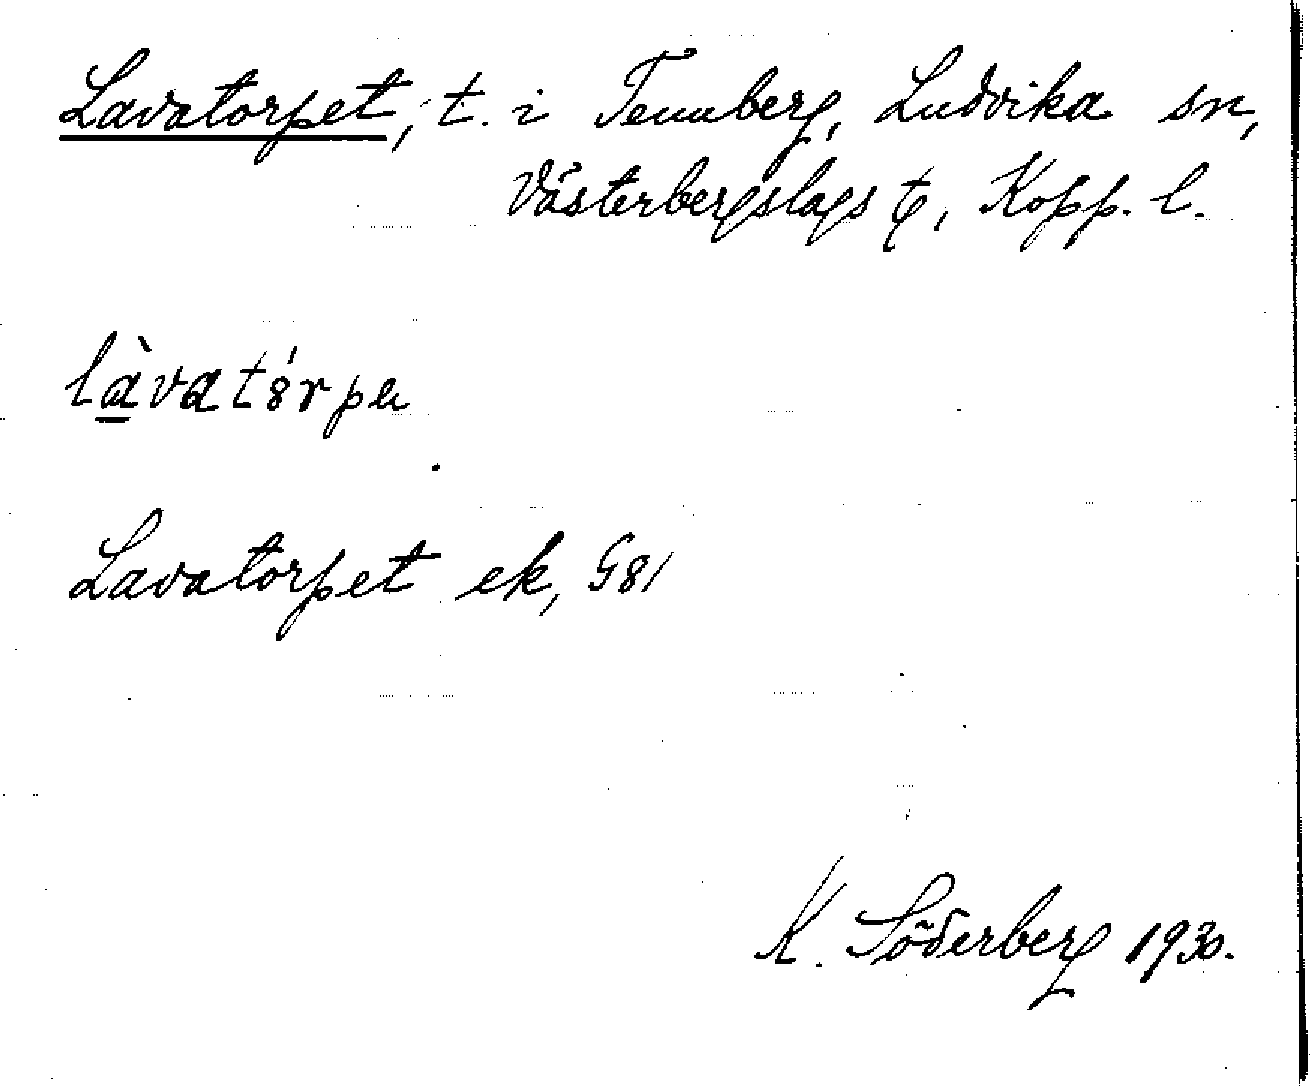 Lavatorpet, t. i Tennberg, Ludvika sn,
Västerbergslags tg, Kopp. l.
làvatórpe
Lavatorpet ek, G81
K. Söderberg 1930.